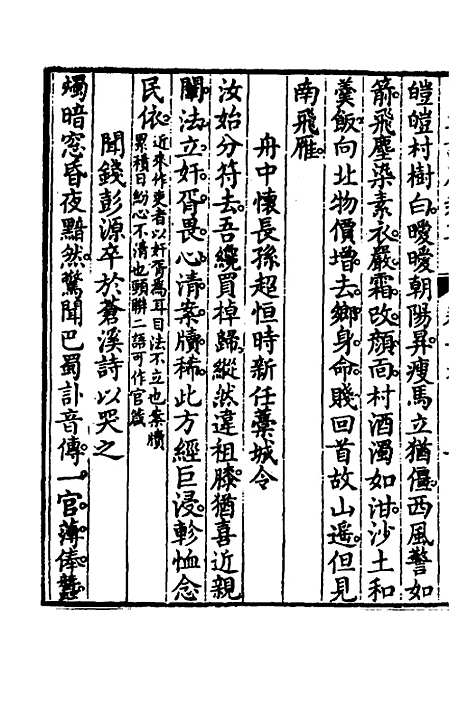 皚皚村樹白曖曖朝陽昇瘦馬立猶僵西風警如
箭飛塵染素衣嚴霜改顏面村酒濁如泔沙土和
羹飯向北物價增去鄉身命賤回首故山遙但見
南飛雁
舟中懷長孫超恒時新任藁城令
汝始分符去吾纔買棹歸縱然違祖膝猶喜近親
闈法立奸胥畏心清案牘稀此方經巨浸軫恤念
民依
近來作吏者以奸胥為耳目法不立也案牘
累積日紛心不清也頸聯二語可作官箴
聞錢彭源卒於蒼溪詩以哭之
燭暗窓昏夜黯然驚聞巴蜀訃音傳一官薄俸